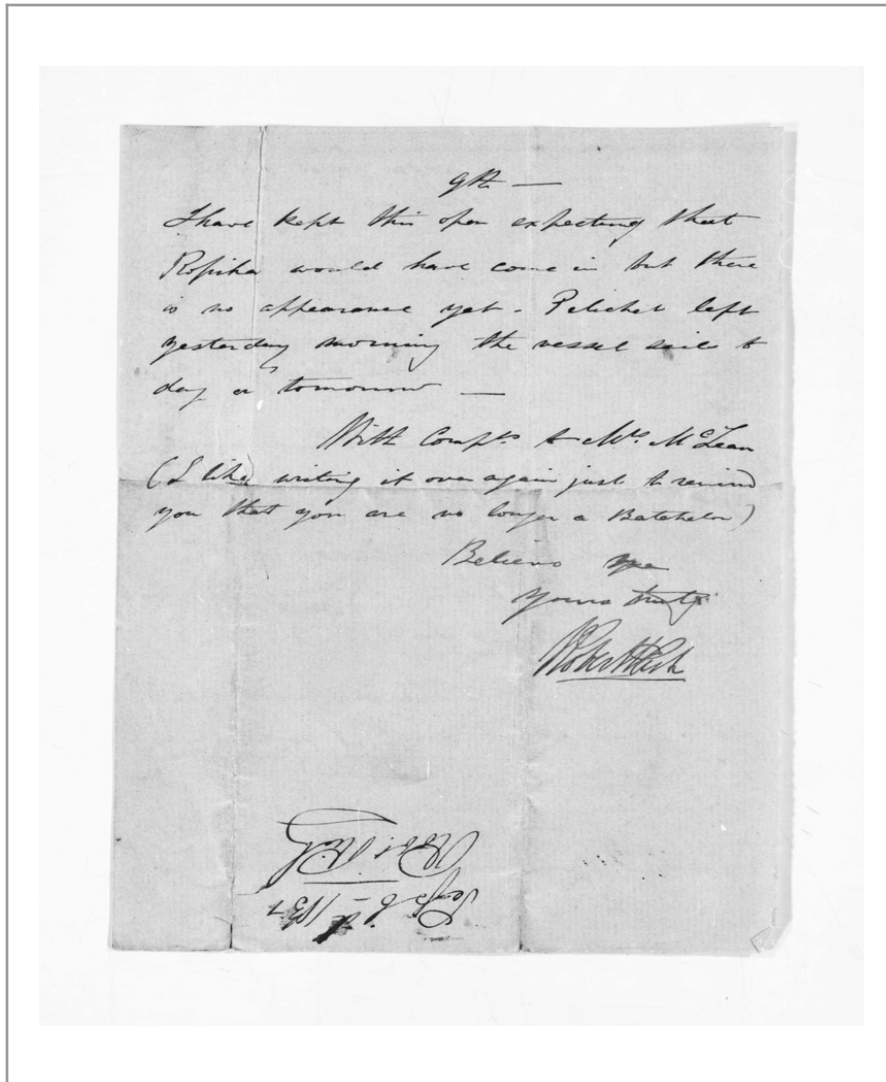 9th —
I have kept this open expecting that
Ropiha would have come in but there
is no appearance yet. Pelichet left
yesterday morning the vessel sails to
day or tomorrow —
With Compts to Mrs McLean
(I like writing it over again just to remind
you that you are no longer a Batchelor)
Believe me
Yours truly
Robert Park
Robt. Park
Sept 6 - 1851